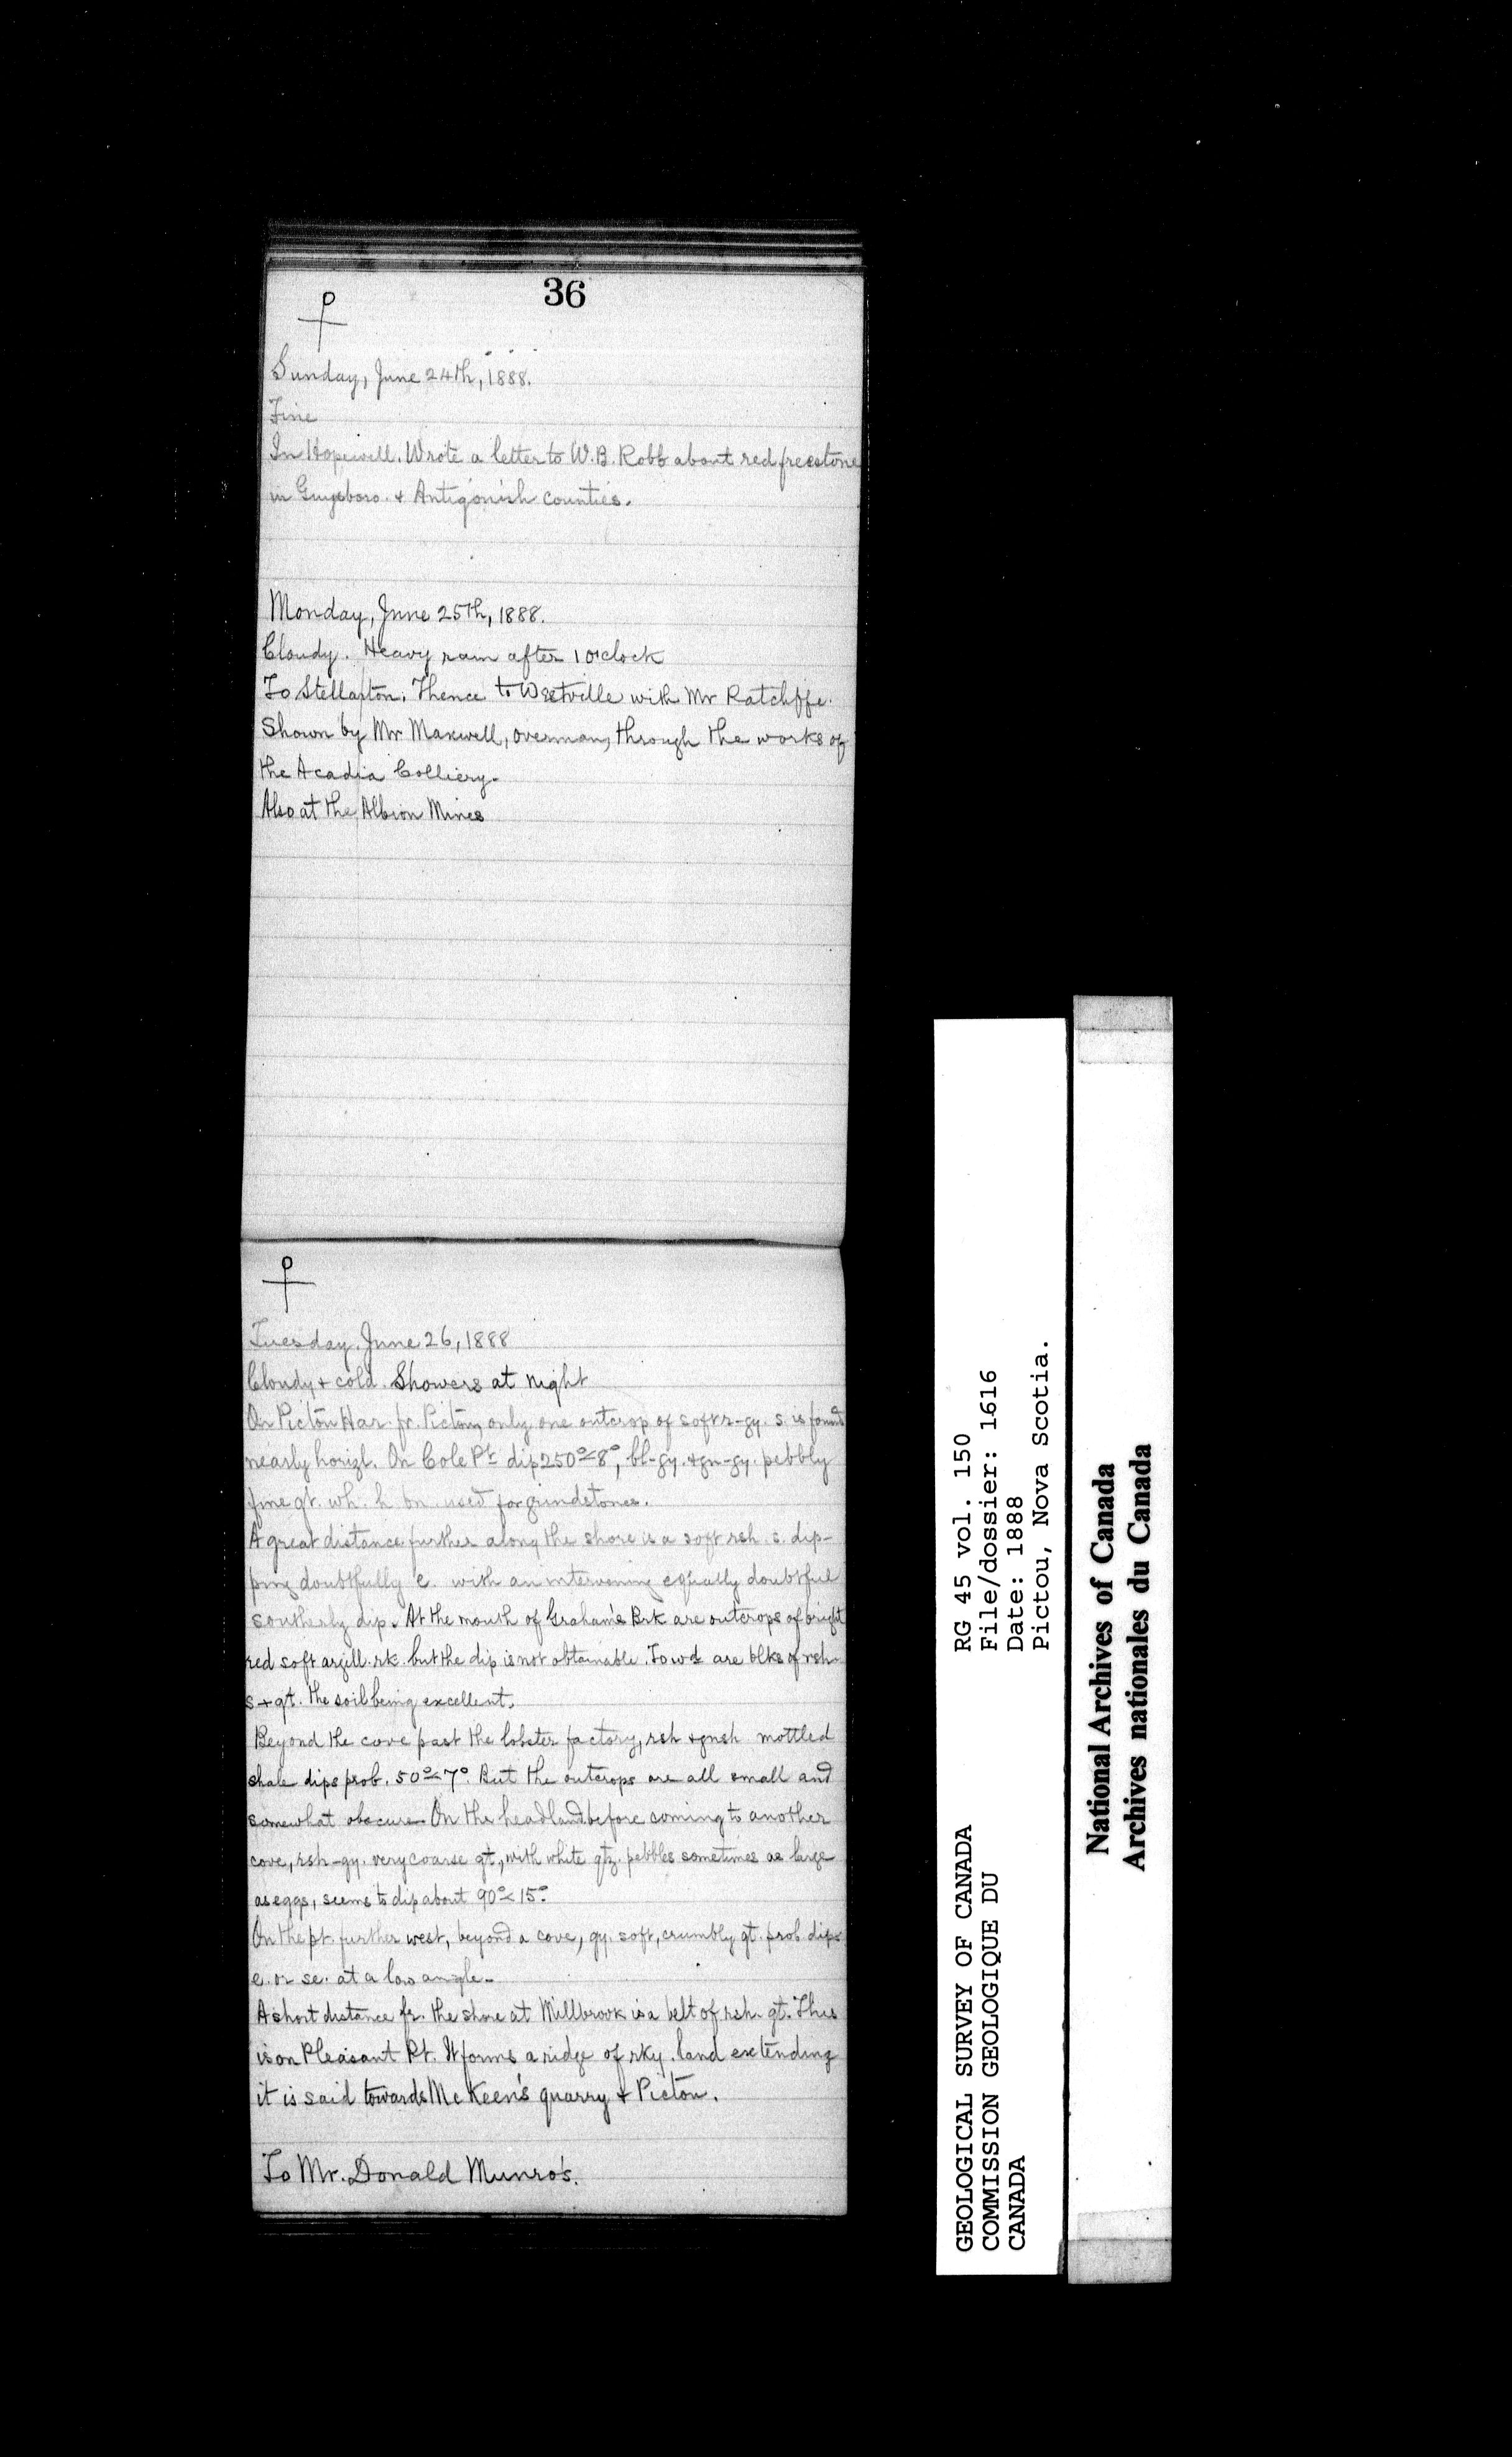 36
Sunday, June 24th, 1888.
Fine
In Hopewell. Wrote a letter to W.B. Robb about red freestone
in Guysboro. + Antigonish counties.
Monday, June 25th, 1888.
Cloudy. Heavy rain after 1 o'clock
To Stellarton. Thence to Westville with Mr Ratchffe.
Shown by Mr Maxwell, overman, through the works of
the Acadia Colliery.
Also at the Albion Mines
Tuesday, June 26, 1888
Cloudy + cold. Showers at night
On Pictou Har. fr. Pictou, only one outcrop of soft r-gy. s. is found
nearly horizl. On Cole Pt dip 250°<8°, bl-gy. + gn-gy. pebbly
fine gt. wh. h. bn. used for grindstones.
A great distance further along the shore is a soft rsh. s. dip-
ping doubtfully e. with an intervening equally doubtful
southerly dip. At the mouth of Graham's Brk are outcrops of bright
red soft argill. rk. but the dip is not obtainable. Towd are blks of rsh.
s + gt. the soil being excellent.
Beyond the cove past the lobster factory, rsh + gnsh mottled
shale dips prob. 50°<7°. But the outcrops are all small and
somewhat obscure. On the headland before coming to another
cove, rsh-gy. very coarse gt., with white qtz. pebbles sometimes as large
as eggs, seems to dip about 90°<15°.
On the pt. further west, beyond a cove, gy. soft, crumbly gt. prob. dips
e. or se. at a low angle.
A short distance fr. the shore at Millbrook is a belt of rsh. gt. This
is on Pleasant Pt. It forms a ridge of rky. land extending
it is said towards McKeen's quarry + Pictou.
To Mr. Donald Munro's.
GEOLOGICAL SURVEY OF CANADA
COMMISSION GEOLOGIQUE DU
CANADA
RG 45 vol. 150
File/dossier: 1616
Date: 1888
Pictou, Nova Scotia.
National Archives of Canada
Archives nationales du Canada